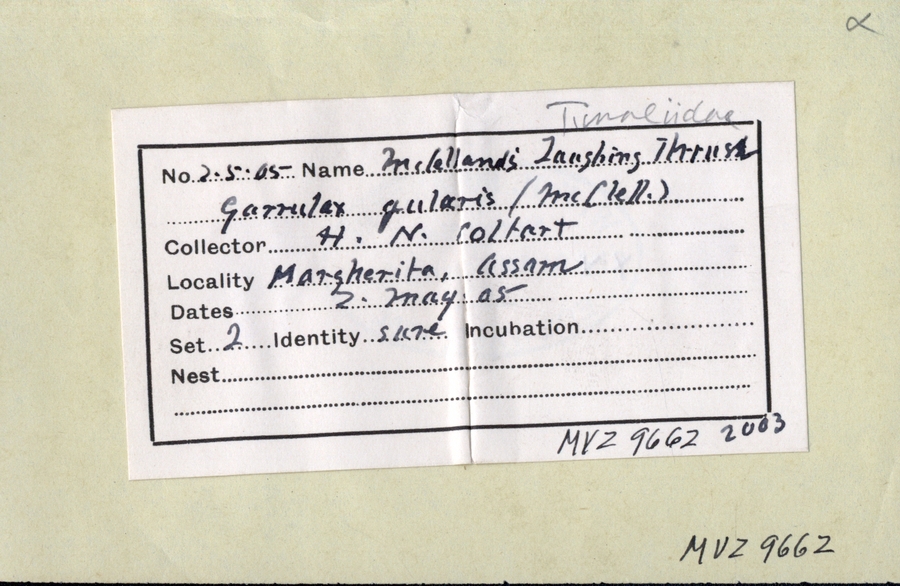 α
Timaliidae
No. 2.5.05 Name McClellands Laughing Thrush
Garrulax gularis (McClell.)
Collector H. N. Coltart
Locality Margherita, Assam
Dates 2. May. 05
Set 2 Identity sure Incubation
Nest
MVZ 9662 2003
MVZ 9662